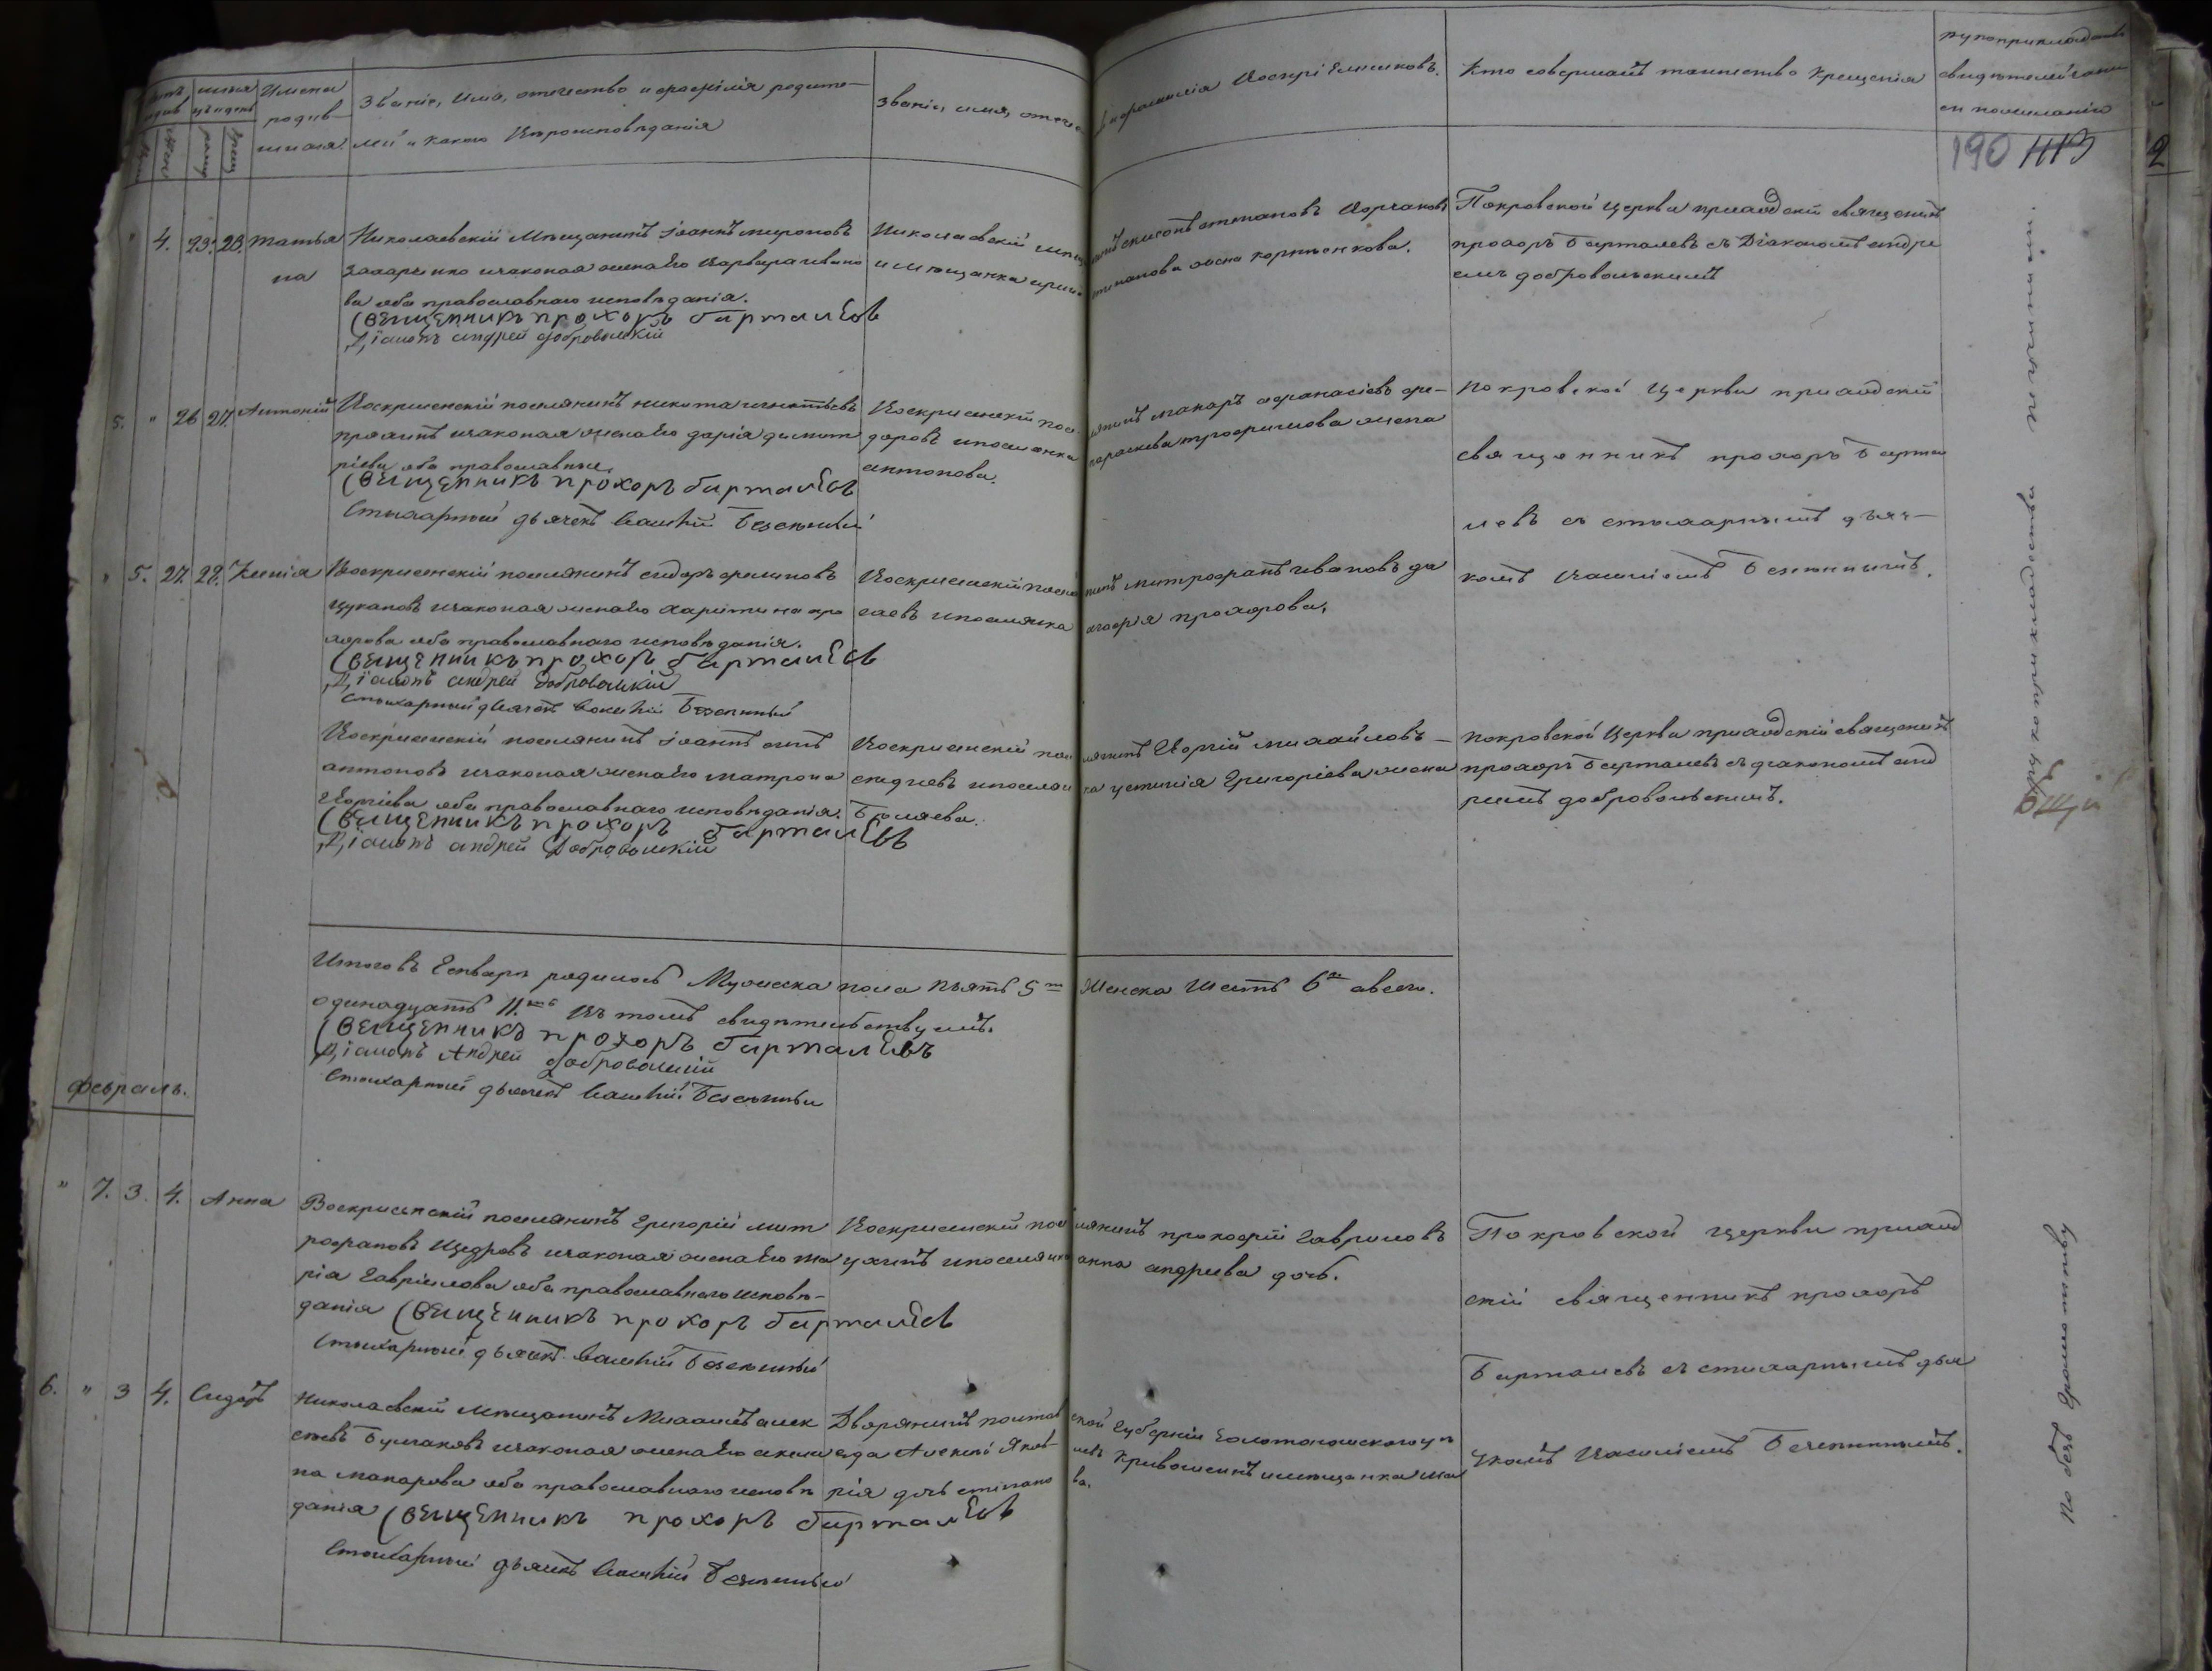 Имена
родив-
шихся.
Званіе, имя, отечество и фамилія родите-
лей и какого вѣроисповѣданія
Званіе, имя, отече
и фамилія воспріемниковъ.
Кто совершалъ таинство крещенія
рукоприкладство
свидѣтелей
по желанію
190
2
" 4. 23. 28. Татья
на
Николаевскій мѣщанинъ іоаннъ мироновъ
захарченко изаконая женаего варвара ивано
ва оба православнаго исповѣданія.
Священникъ прохоръ барталевъ
Діаконъ андрей добровольскій
Николаевскій мѣщ
и мѣщанка ирин
степановъ
степанова жена корнѣенкова.
Покровской Церкви приходскій священникъ
прохоръ Барталевъ съ Діакономъ андре
емъ добровольскимъ
5. " 26 27. Антоній
Воскрисенскій поселянинъ никита игнатьевъ
изаконая женаего дарія димит
ріева оба православные,
Священникъ прохоръ барталевъ
Стихарный дьячекъ Василій
Воскрисенскій посе
доровъ ипоселянка
антонова.
лянинъ макаръ афанасіевъ фе-
параскева трофимова жена
покровской Церкви приходскій
священникъ прохоръ Барта
левъ съ стихарнымъ дьяч-
комъ Василіемъ
" 5. 27. 28. Ксенія
Воскрисенскій поселянинъ сидоръ филиповъ
цукановъ изаконая женаего харитина про
хорова оба православнаго исповѣданія.
Священникъ прохоръ барталевъ
Діаконъ андрей добровольскій
Стихарный дьячекъ Василій
Воскрисенскій посел
ипоселянка
нинъ митрофанъ ивановъ
агафія прохорова.
Воскрисенскій поселянинъ іоаннъ
антоновъ изаконая женаего матрона
Георгіева оба православнаго исповѣданія.
Священникъ прохоръ барталевъ
Діаконъ андрей Добровольскій
Воскрисенскій посе
ипоселян
Беляева.
лянинъ Георгій михайловъ -
ка устинія Григоріева жена
покровской Церкви приходскій священникъ
прохоръ Барталевъ съ діакономъ анд
реемъ добровольскимъ.
Итого въ Генварѣ родилось Мужеска пола пьять 5 Женска шесть 6 авсего.
одинадцать 11. Въ томъ свидѣтельствуемъ.
Священникъ прохоръ барталевъ
Діаконъ Андрей Добровольскій
Стихарный дьячекъ Василій
февраль.
" 7. 3. 4. Анна
Воскрисенскій поселянинъ Григорій мит
рофановъ Щедровъ изаконая женаего ма
рія Гавріилова оба православнаго исповѣ-
данія Священникъ прохоръ барталевъ
Стихарный дьячекъ Василій
Воскрисенскій посе
ипоселянка
лянинъ прокофій Гавриловъ
анна андреева дочь.
Покровской церкви приход
скій священникъ прохоръ
Барталевъ съ стихарнымъ дья
чкомъ Василіемъ
6. " 3 4. Сидоръ
Николаевскій мѣщанинъ Михаилъ алек
сѣевъ Булгаковъ изаконая женаего акели
на макарова оба православнаго исповѣ
данія Священникъ прохоръ барталевъ
Стихарный дьячекъ Василій
Дворянинъ полтав
ской Губерніи Золотоношского уѣ
зда Алексѣй Яков-
левъ Кривошеинъ имѣщанка ма
рія дочь степано
ва.
рукоприкладства не учинили.
По безъ Грамотству